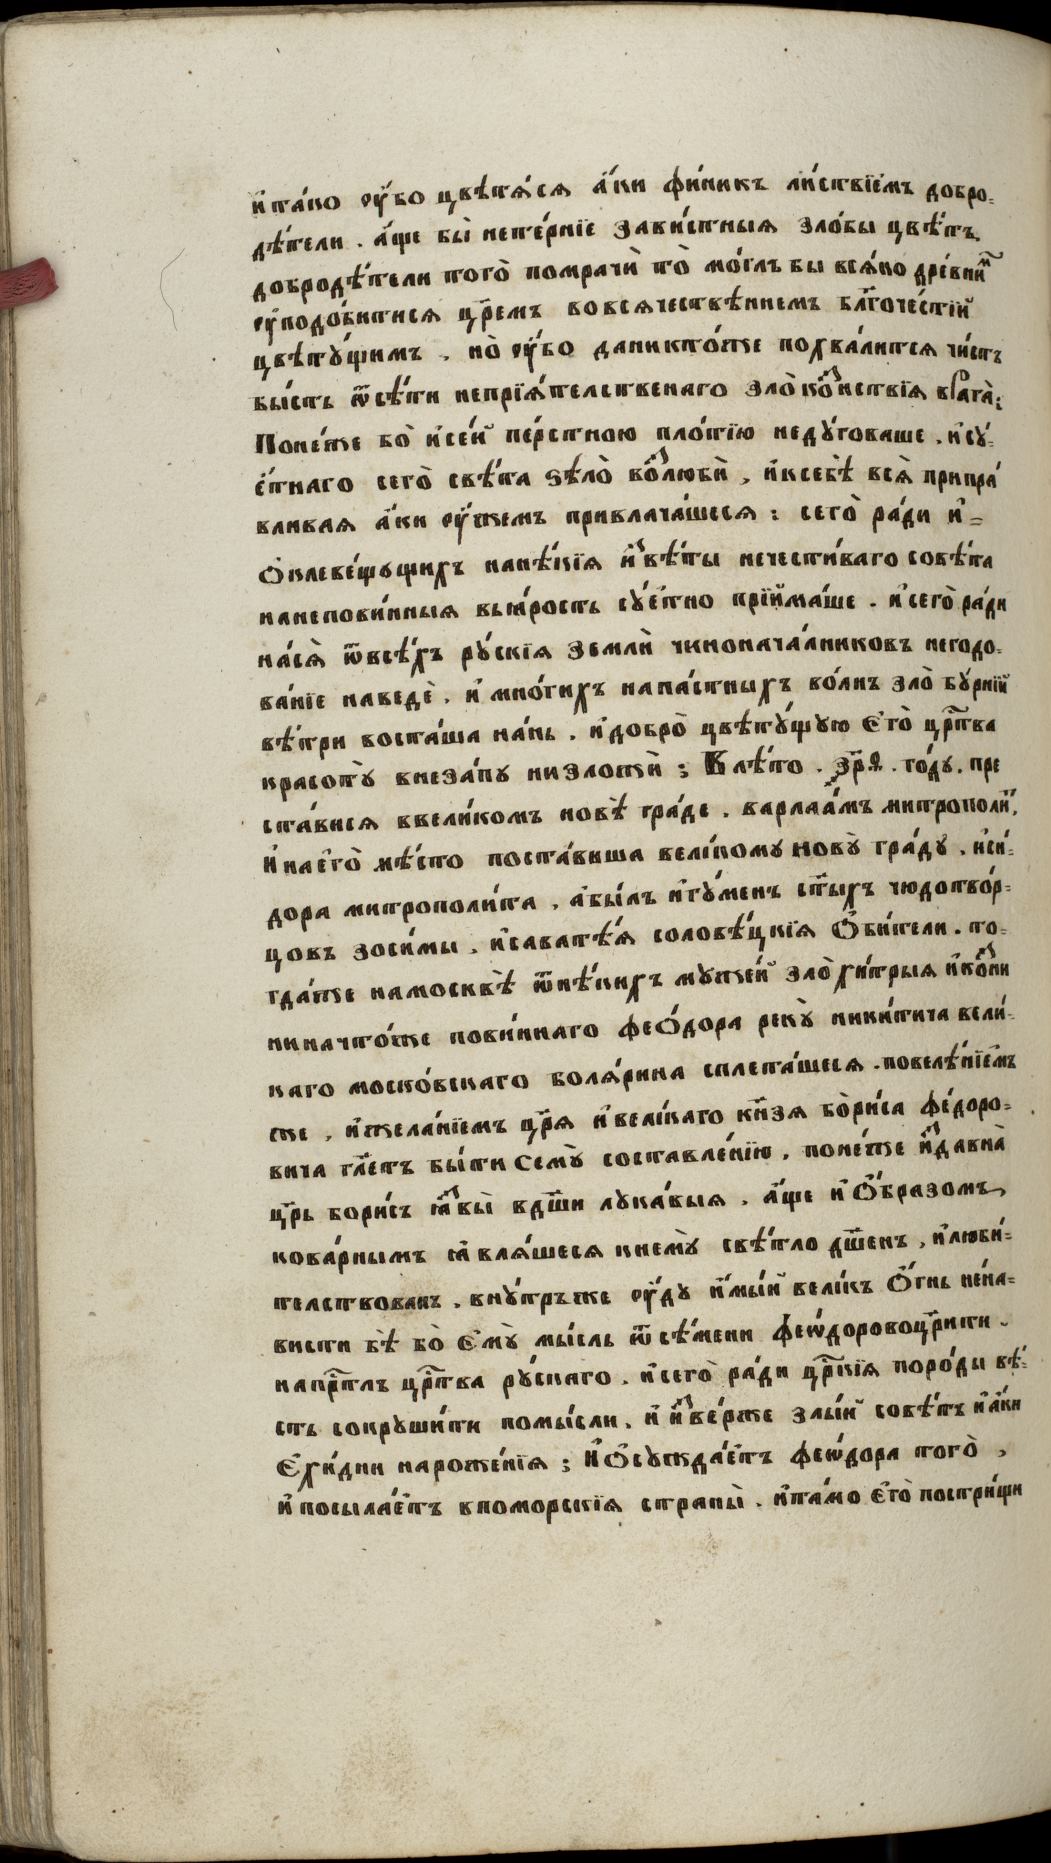 и҆та́ко ᲂу҆́бо цвѣтѧ́сѧ а҆́ки фи́никъ ли́ствїемъ добро-
дѣ́тели . а҆́ще бы̀ нете́рнїе зави́стныѧ зло́бы цвѣ́тъ
добродѣ́тели того̀ помрачѝ то̀ мо́глъ бы всѧ́ко дре́внимъ
ᲂу҆подо́битисѧ цр҃емъ вовсѧчествѣннемъ бл҃гоче́стїй
цвѣту́щимъ , но̀ ᲂу҆́бо даникто́же похва́литсѧ чи́стъ
бы́сть ѿсѣ́ти непрїѧ́тельственаго зло̀ко́знствїѧ врага̀:
Поне́же бо̀ и҆се́й пе́рстною пло́тїю неду́говаше . и҆су-
е́тнаго сего̀ свѣ́та ѕѣло̀ возлюбѝ , и҆ксебѣ̀ всѧ̀ припра́
вливаѧ а҆́ки ᲂу҆́жемъ привлача́шесѧ : сего̀ ра́ди и҆=
ѻ҆клеве́щущихъ нанѣ́кїѧ и҆звѣ́ты нечести́ваго совѣ́та
наненови́нныѧ въꙗ́рость су́етно прїйма́ше . и҆сего̀ ра́ди
на́сѧ̀ ѿвсѣ́хъ ру́скїѧ землѝ чинонача́лниковъ негодо-
ва́нїе наведѐ . и҆ мно́гихъ напа́стныхъ во́лнъ зло̀ бу́рнїй
вѣ́три воста́ша на́нь . и҆добро̀ цвѣту́щую є҆го̀ цр҃тва
красоту̀ внеза́пу низложѝ : Влѣ́то . ꙁ҃рѳ . го́ду . пре
ста́висѧ ввели́комъ новѣ̀ гра́де . варлаа́мъ митрополи́тъ ,
И҆ на є҆го̀ мѣ́сто поста́виша вели́кому нову̀ гра́ду . и҆си́-
дора митрополи́та , а҆бы́лъ и҆гу́менъ ст҃ы́хъ чюдотво́р-
цовъ зоси́мы . и҆савате́ѧ солове́цкїѧ ѻ҆би́тели . то-
гда́же намосквѣ̀ ѿнѣ́кихъ муже́й зло̀хи́трыѧ и҆ко́зни
ниначто́же пови́ннаго феѻ́дора реку̀ ники́тича вели́-
каго моско́вскаго болѧ́рина сплета́шесѧ . повелѣ́нїемъ
же , и҆жела́нїемъ цр҃ѧ и҆вели́каго кн҃зѧ бори́са фе́доро-
вича гл҃етъ бы́ти сему̀ составле́нїю , поне́же и҆здавна̀
цр҃ь бори́съ ꙗ҆звы̀ вдш҃и лука́выѧ . а҆́ще и҆ ѻ҆́бразомъ
кова́рнымъ ꙗ҆влѧ́шесѧ кнему̀ свѣ́тло дш҃енъ , и҆люби́-
телствованъ . вну́трьже ᲂу҆́ду и҆мы́й вели́къ ѻ҆́гнь не́на-
висти бѣ̀ бо̀ є҆му̀ мы́сль ѿсѣ́мени феѡ́доровоцр҃ити .
напр҃тлъ цр҃тва ру́скаго . и҆сего̀ ра́ди цр҃кїѧ поро́ды вѣ́-
сть сокруши́ти помы́сли . и҆ и҆зве́рже злы́й совѣ́тъ и҆а҆́ки
є҆хи́дни нароже́нїѧ : И҆ѻ҆сужда́етъ феѡ́дора того̀ ,
и҆посыла́етъ кпомо́рскїѧ страны̀ . и҆та́мо є҆го̀ постри́щи